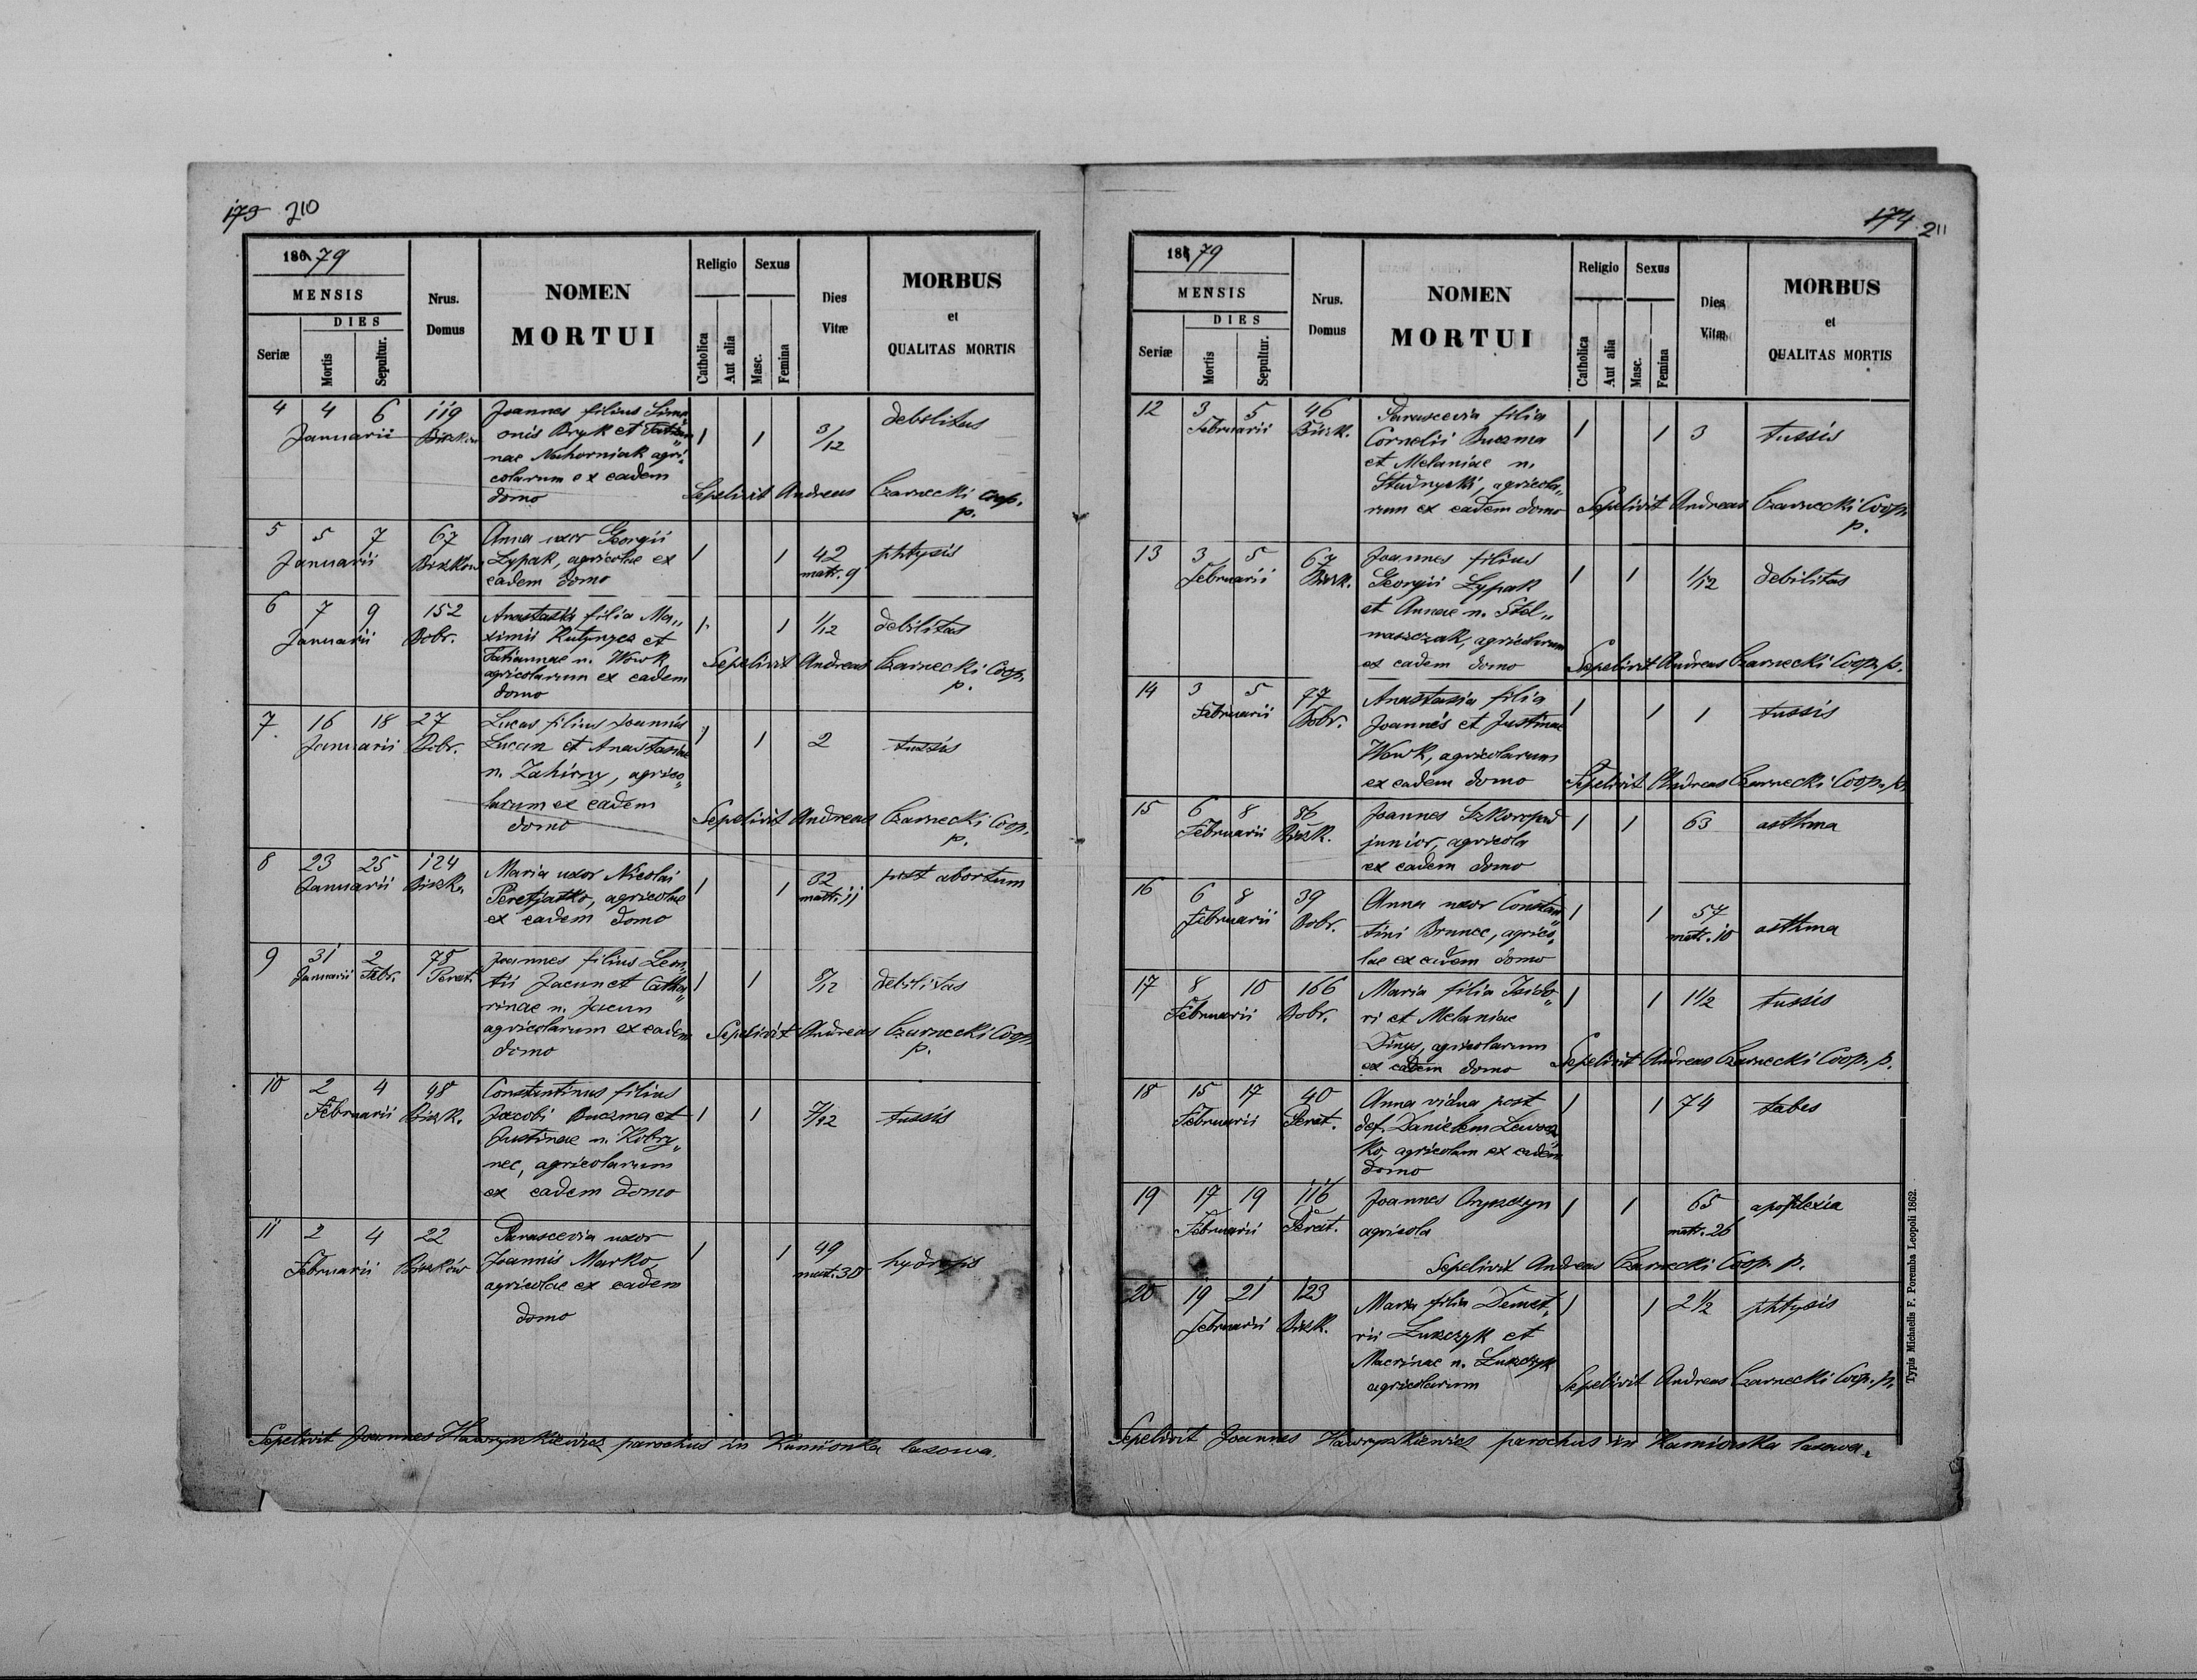 173 210
1879
MENSIS
DIES
Seriæ
Mortis
Sepultur.
Nrus.
Domus
NOMEN
MORTUI
Religio
Catholica
Aut alia
Sexus
Masc.
Femina
Dies
Vitæ
MORBUS
et
QUALITAS MORTIS
4 4 6 119 Joannes filius Sime„
Januarii Biszków onis Bryk et Tatian„ 1 1 3/12 debilitas
nae Nahorniak agri„
colarum ex eadem
domo Sepelivit Andreas Czarnecki Coop.
p.
5 5 7 67 Anna uxor Georgii
Januarii Biszków Lypak, agricolae ex 1 1 42 phtysis
eadem domo matr. 9
6 7 9 152 Anastasia filia Ma„
Januarii Dobr. ximii Kutynycz et 1 1 1/12 debilitas
Tatiannae n. Wowk
agricolarum ex eadem Sepelivit Andreas Czarnecki Coop.
domo p.
7 16 18 27 Lucas filius Joannis
Januarii Dobr. Lucan et Anastasiae 1 1 2 tussis
n. Zahirny, agrico„
larum ex eadem
domo Sepelivit Andreas Czarnecki Coop.
p.
8 23 25 124 Maria uxor Nicolai
Januarii Biszk. Peretjatko, agricolae 1 1 32 post abortum
ex eadem domo matr. 11
9 31 2 78 Joannes filius Leon„
Januarii Febr. Peret. tii Jacun et Catha„ 1 1 8/12 debilitas
rinae n. Jacun
agricolarum ex eadem Sepelivit Andreas Czarnecki Coop.
domo p.
10 2 4 48 Constantinus filius
Februarii Biszk. Jacobi Buczma et 1 1 7/12 tussis
Justinae n. Kobry„
nec, agricolarum
ex eadem domo
11 2 4 22 Parascevia uxor
Februarii Biszków Joannis Marko, 1 1 49 hydrops
agricolae ex eadem matr. 30
domo
Sepelivit Joannes Hawryszkiewicz parochus in Kamionka lasowa.
174 211
1879
MENSIS
DIES
Seriæ
Mortis
Sepultur.
Nrus.
Domus
NOMEN
MORTUI
Religio
Catholica
Aut alia
Sexus
Masc.
Femina
Dies
Vitæ
MORBUS
et
QUALITAS MORTIS
12 3 5 46 Parascevia filia
Februarii Biszk. Cornelii Buczma 1 1 3 tussis
et Melaniae n.
Studnycki, agricola„
rum ex eadem domo Sepelivit Andreas Czarnecki Coop.
p.
13 3 5 67 Joannes filius
Februarii Biszk. Georgii Lypak 1 1 1/12 debilitas
et Annae n. Stel„
maszczak, agricolarum
ex eadem domo Sepelivit Andreas Czarnecki Coop. p.
14 3 5 77 Anastasia filia
Februarii Dobr. Joannis et Justinae 1 1 1 tussis
Wowk, agricolarum
ex eadem domo Sepelivit Andreas Czarnecki Coop. p.
15 6 8 86 Joannes Szkoropad
Februarii Biszk. junior, agricola 1 1 63 asthma
ex eadem domo
16 6 8 39 Anna uxor Constan„
Februarii Dobr. tini Brunec, agrico„ 1 1 57 asthma
lae ex eadem domo matr. 10
17 8 10 166 Maria filia Isido„
Februarii Dobr. ri et Melaniae 1 1 1 1/2 tussis
agricolarum
ex eadem domo Sepelivit Andreas Czarnecki Coop. p.
18 15 17 40 Anna vidua post
Februarii Peret. def. Danielem 1 1 74 tabes
ko, agricolam ex eadem
domo
19 17 19 116 Joannes Onyszczyn
Februarii Peret. agricola 1 1 65 apoplexia
matr. 26
Sepelivit Andreas Czarnecki Coop. p.
20 19 21 123 Maria filia Demet„
Februarii Biszk. rii Luszczyk et 1 1 2 1/2 phtysis
Macrinae n. Luszczyk
agricolarum Sepelivit Andreas Czarnecki Coop. p.
Sepelivit Joannes Hawryszkiewicz parochus in Kamionka lasowa.
Typis Michaelis F. Poremba Leopoli 1862.